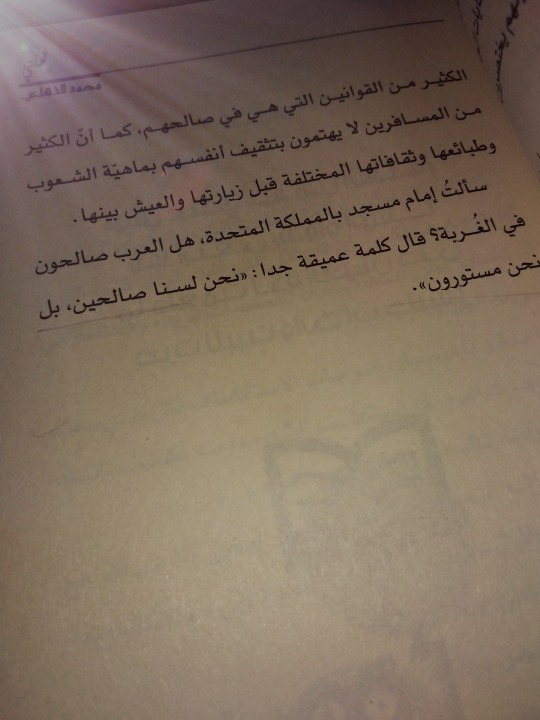 محمد الذهلي
الكثير من القوانين التي هي في صالحهم، كما أنّ الكثير
من المسافرين لا يهتمون بتثقيف أنفسهم بماهيّة الشعوب
وطبائعها وثقافاتها المختلفة قبل زيارتها والعيش بينها.
سألتُ إمام مسجد بالمملكة المتحدة، هل العرب صالحون
في الغُربة؟ قال كلمة عميقة جدا: «نحن لسنا صالحين، بل
نحن مستورون».